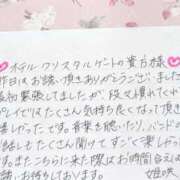 ホテル クリスタルゲートの貴方様
昨日はお誘い頂きありがとうございました
最初緊張してましたが、段々慣れてくれ
プレイではたくさん気持ち良くなって頂
嬉しかったです。音楽を聴いたり、バンドの
お話しもたくさん聞けてすごく楽しかった
す。またこちらに来た際はお時間合えば
お誘いお待ちしております。 姫咲